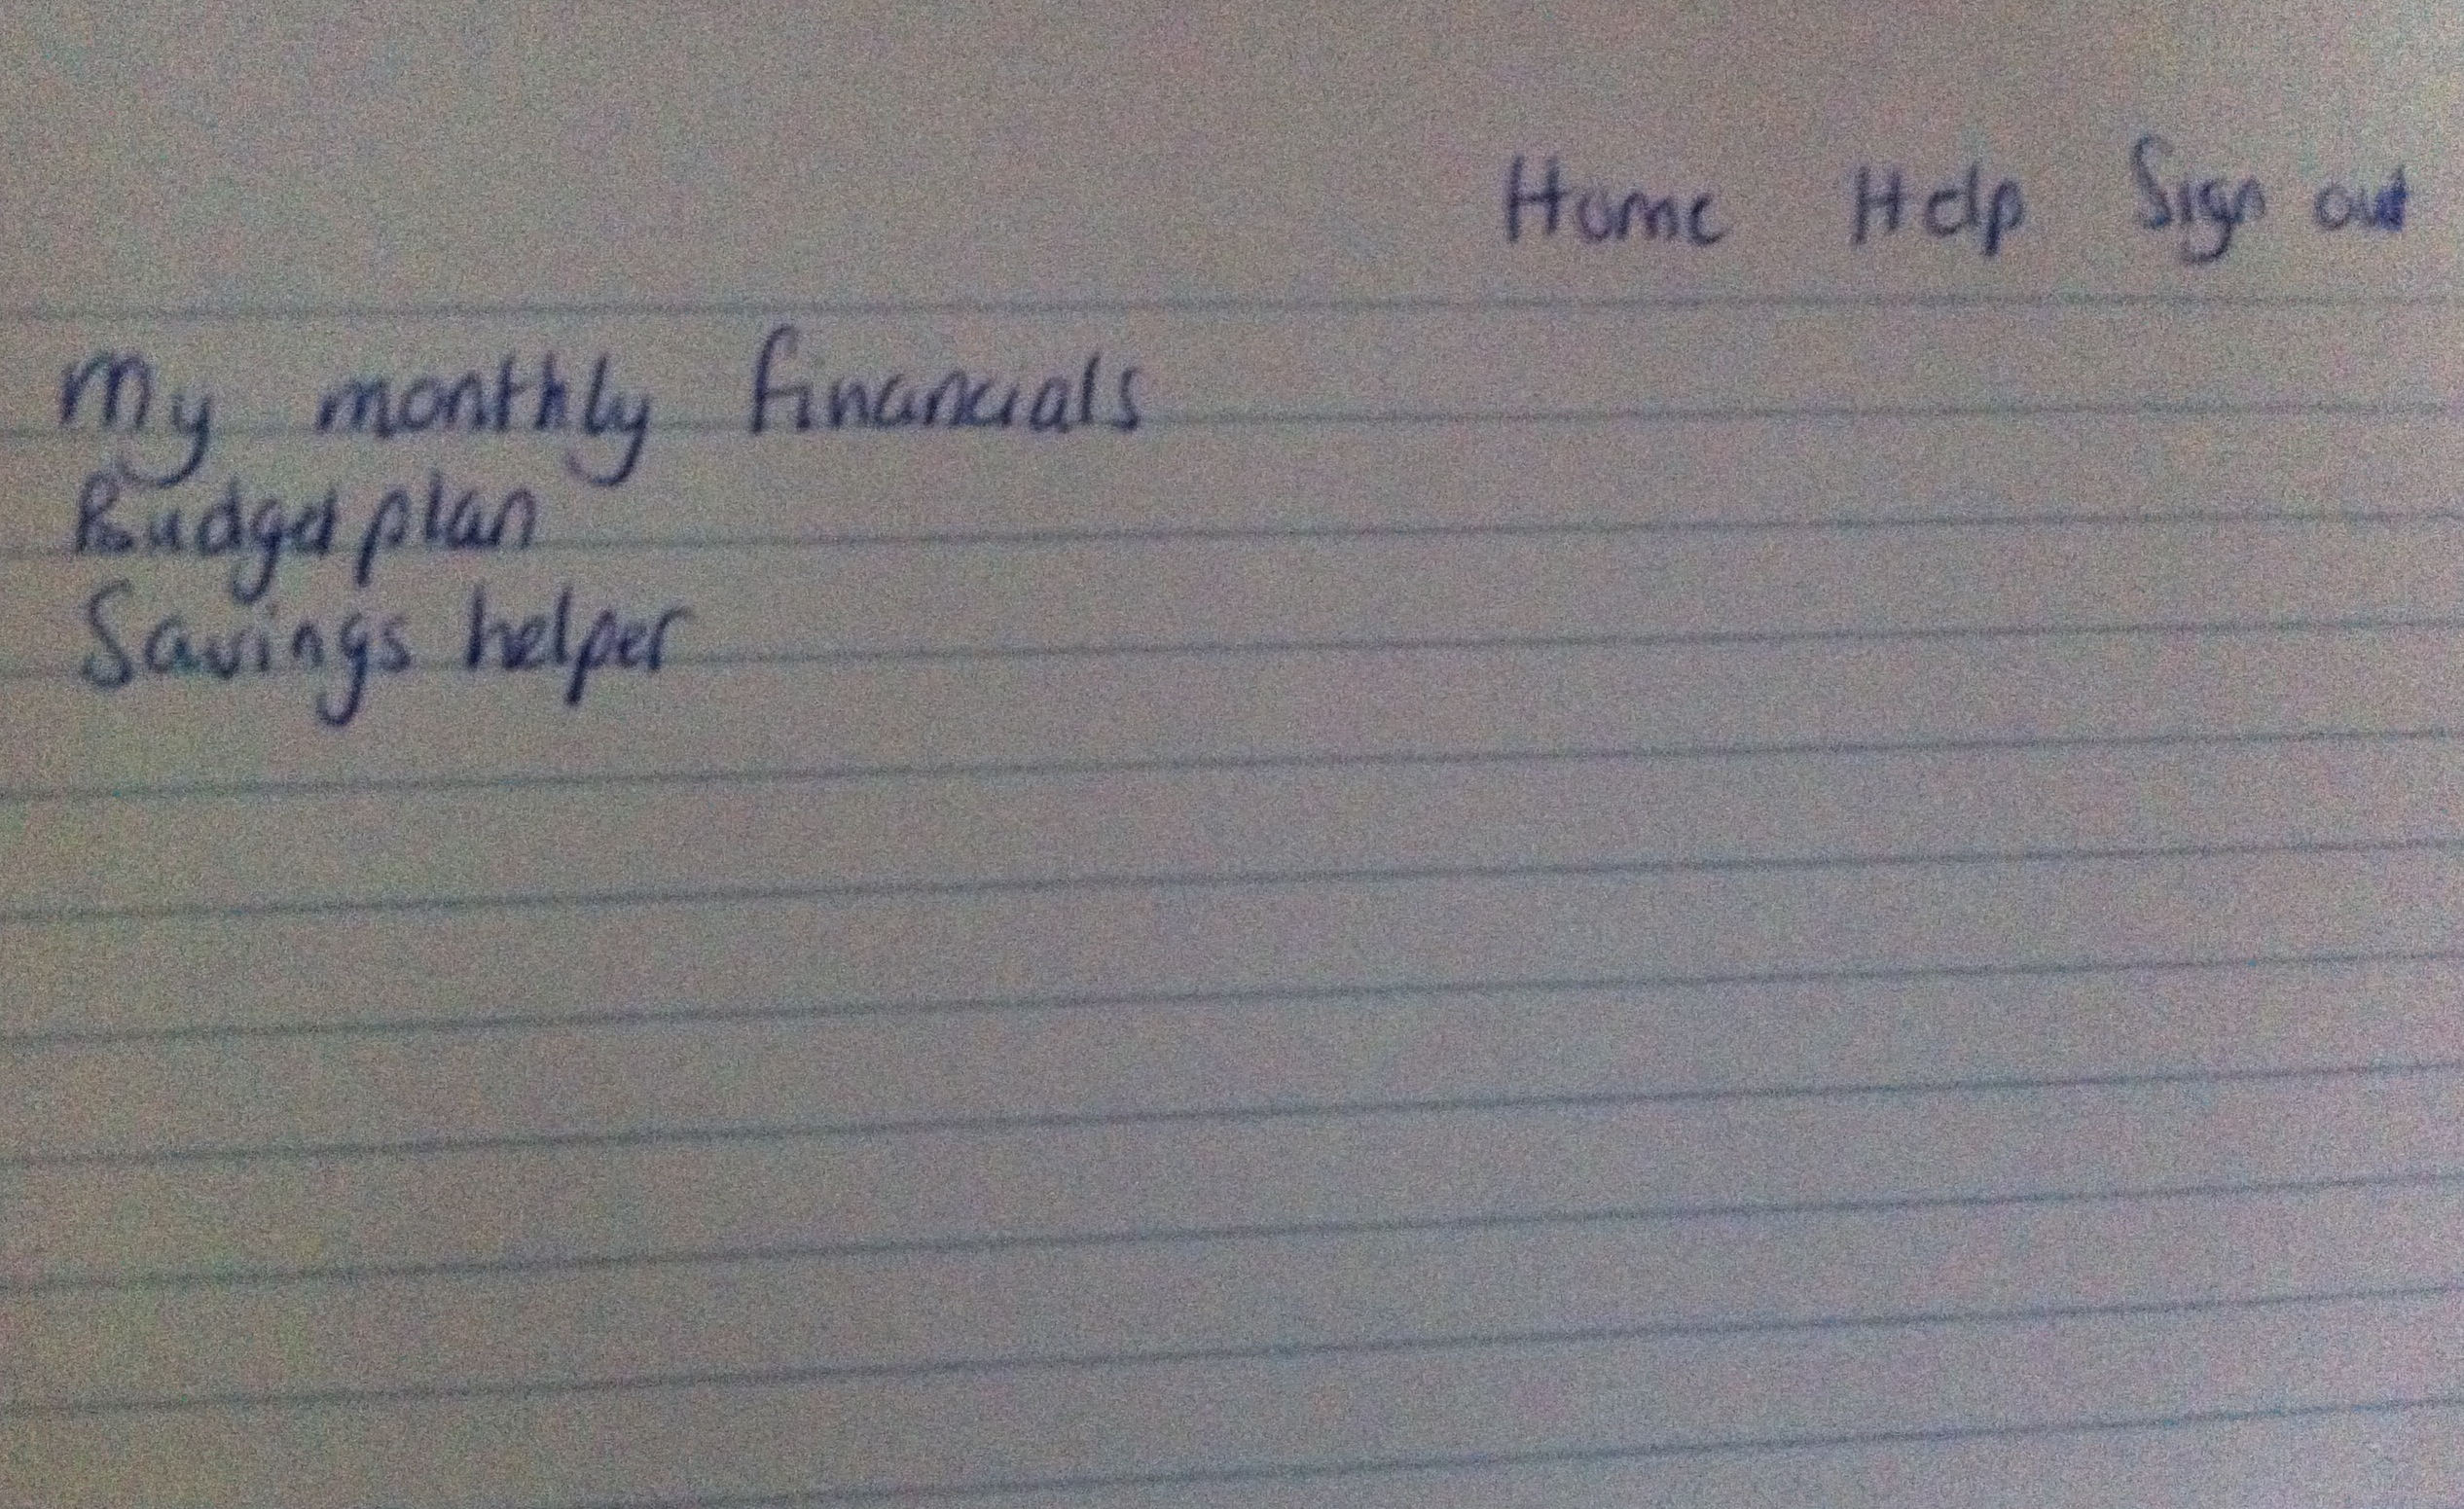 Home Help Sign out
My monthly financials
Budget plan
Savings helper